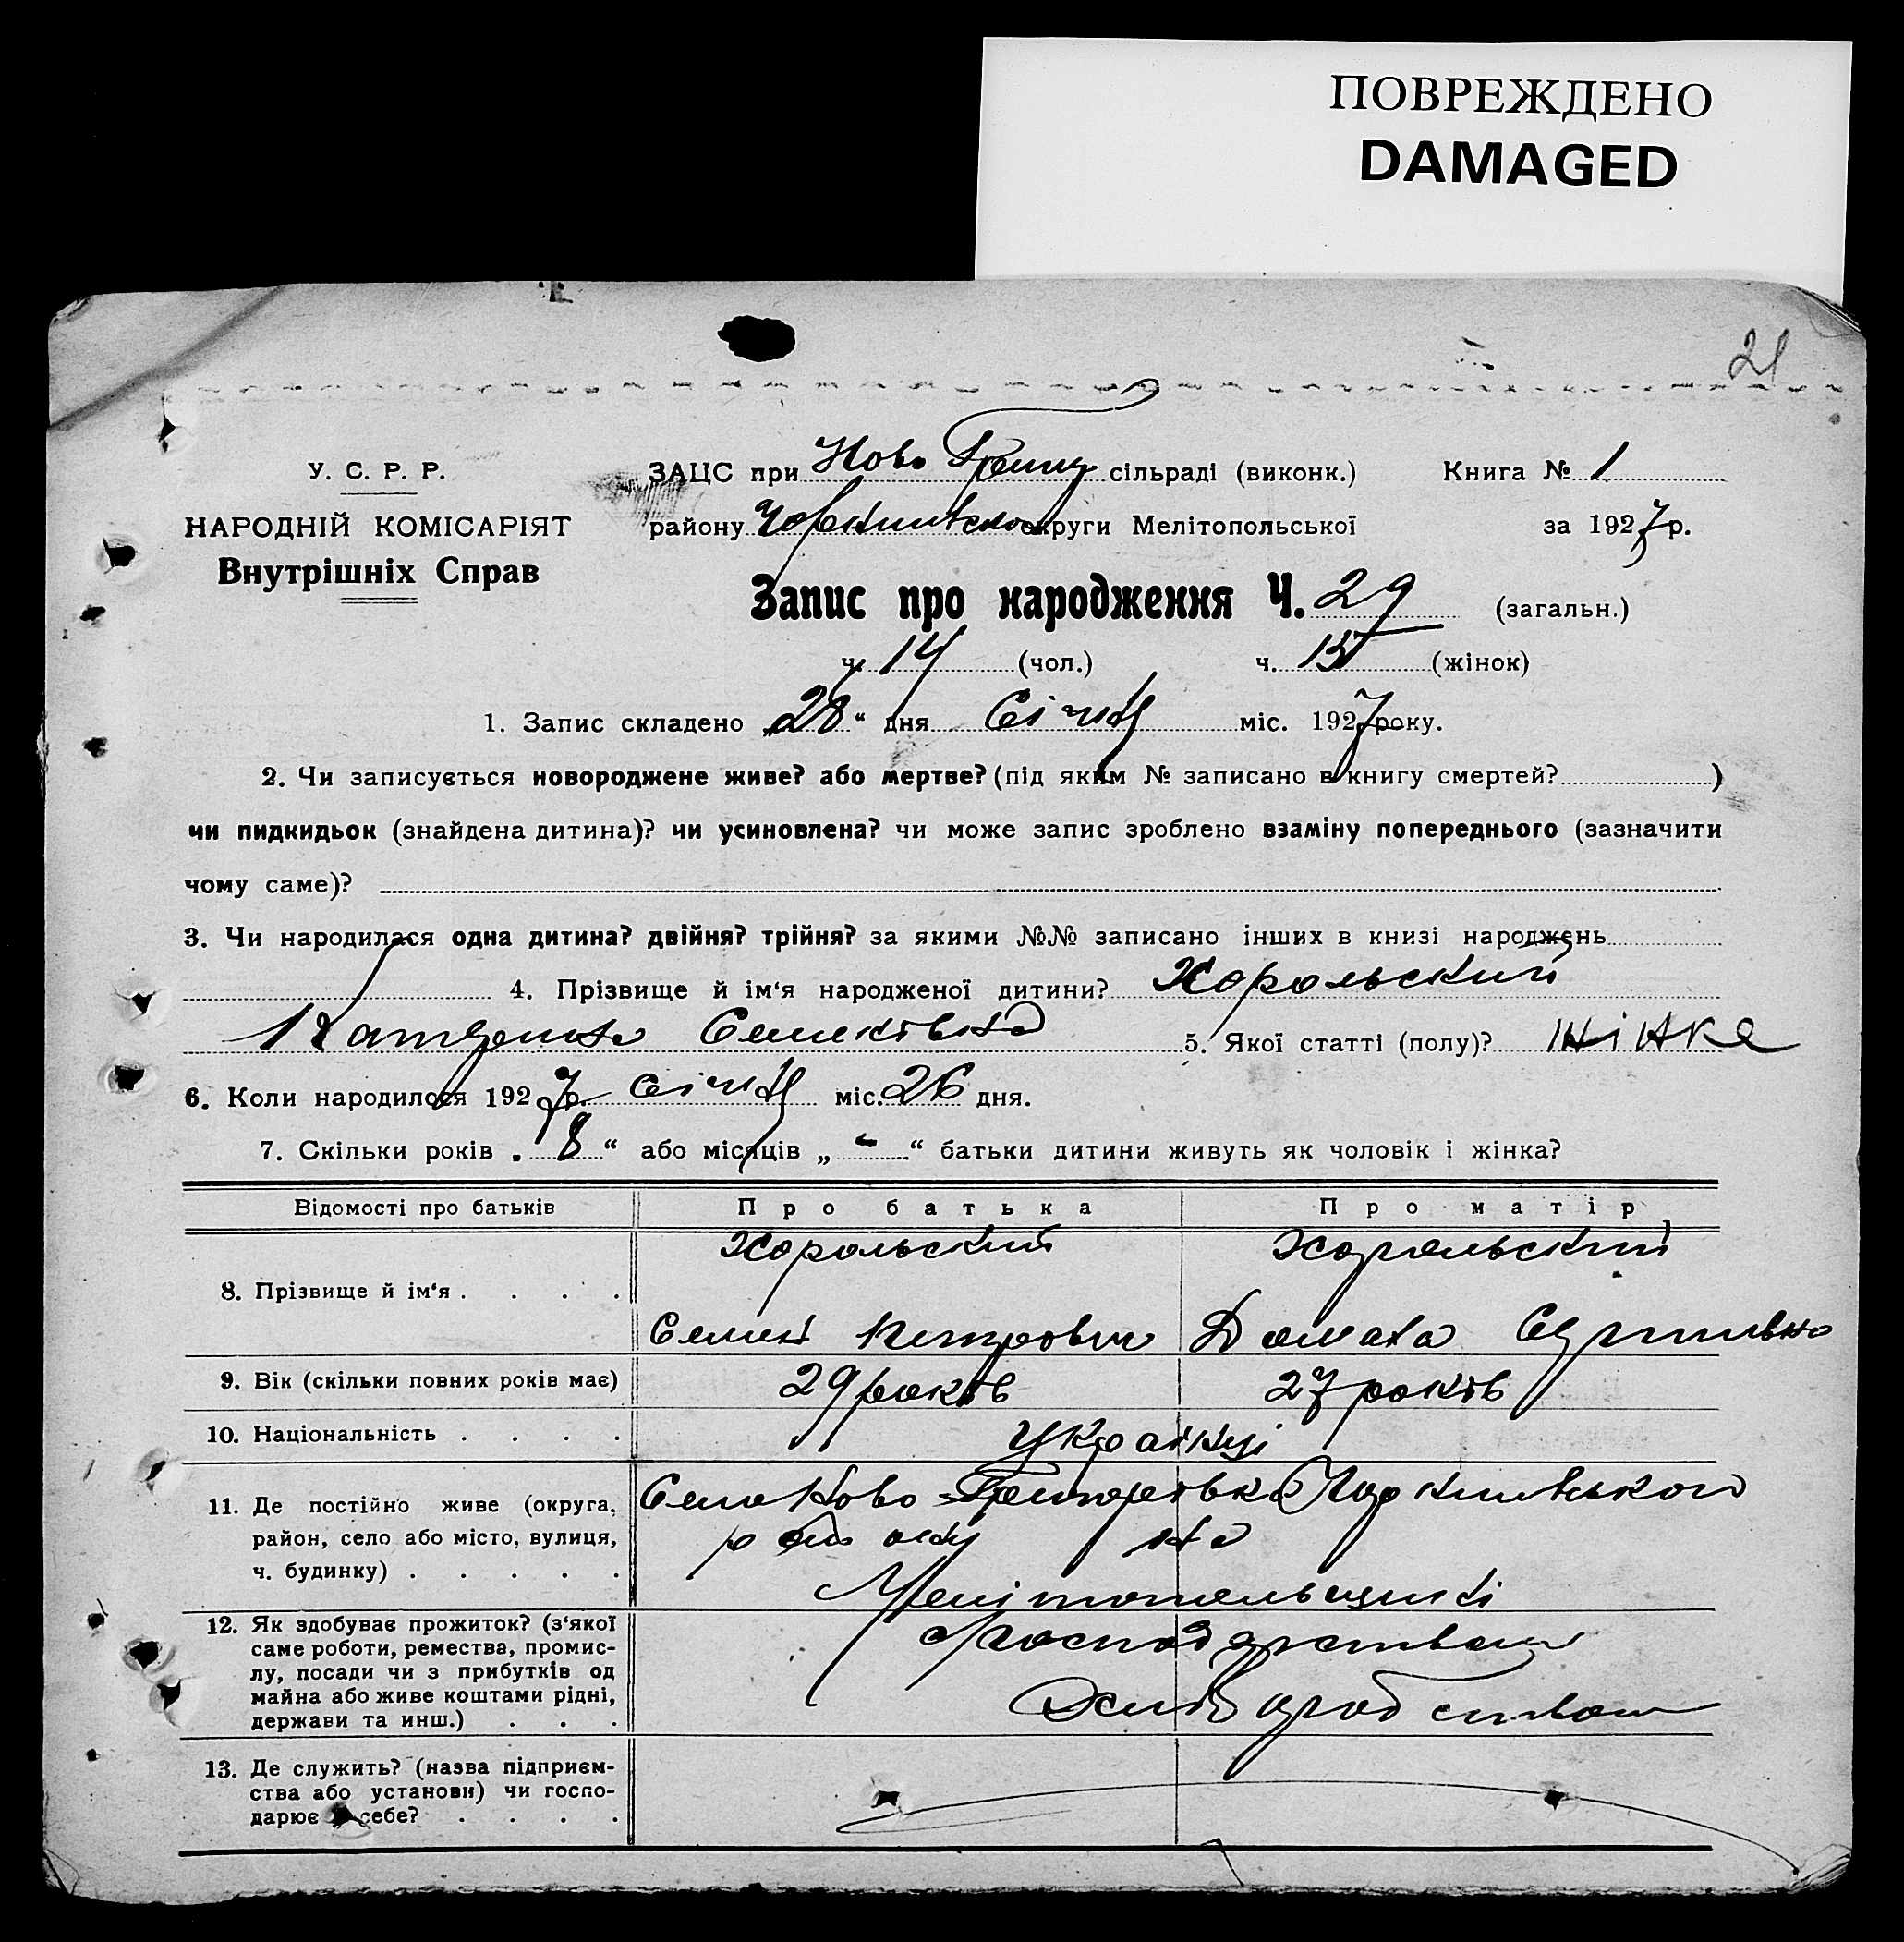 ПОВРЕЖДЕНО
DAMAGED
21
У. С. Р. Р.
НАРОДНІЙ КОМІСАРІЯТ
Внутрішніх Справ
ЗАЦС при Ново сільраді (виконк.) Книга № 1
району округи Мелітопольської за 1927 р.
Запис про народження Ч. 29 (загальн.)
ч. 14 (чол.) ч. 15 (жінок)
1. Запис складено „28“ дня Січня міс. 1927 року.
2. Чи записується новороджене живе? або мертве? (під яким № записано в книгу смертей? )
чи пидкидьок (знайдена дитина)? чи усиновлена? чи може запис зроблено взаміну попереднього (зазначити
чому саме)?
3. Чи народилася одна дитина? двійня? трійня? за якими №№ записано інших в книзі народжень
4. Прізвище й ім‘я народженої дитини? Хорольский
Семенівна 5. Якої статті (полу)? жінке
6. Коли народилося 1927 р. Січня міс. 26 дня.
7. Скільки років „8“ або місяців „-“ батьки дитини живуть як чоловік і жінка?
Відомості про батьків Про батька Про матір
Хорольский Хорольский
8. Прізвище й ім‘я . . . .
Семен Петрович Домаха
9. Вік (скільки повних років має) 29 років 27 років
10. Національність . . . . Українці
11. Де постійно живе (округа, Село Ново
район, село або місто, вулиця, району на
ч. будинку) . . . . . Мелітопольщині
12. Як здобуває прожиток? (з‘якої
саме роботи, ремества, промис- господарством
лу, посади чи з прибутків од
майна або живе коштами рідні, хліборобством
держави та инш.) . . .
13. Де служить? (назва підприєм-
ства або установи) чи госпо-
дарює в себе? . . . .